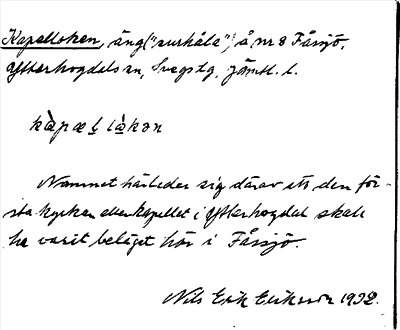 Kapelloken, äng ("surhåla") å nr 8 Fåssjö,
Ytterhogdals sn, Svegs tg, Jämtl. l.
kàpæl làkən
Namnet härleder sig därav att den för-
sta kyrkan eller kapellet i Ytterhogdal skall
ha varit beläget här i Fåssjö.
Nils Erik Eriksson 1932.